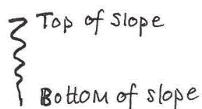 Top of slope
Bottom of slope